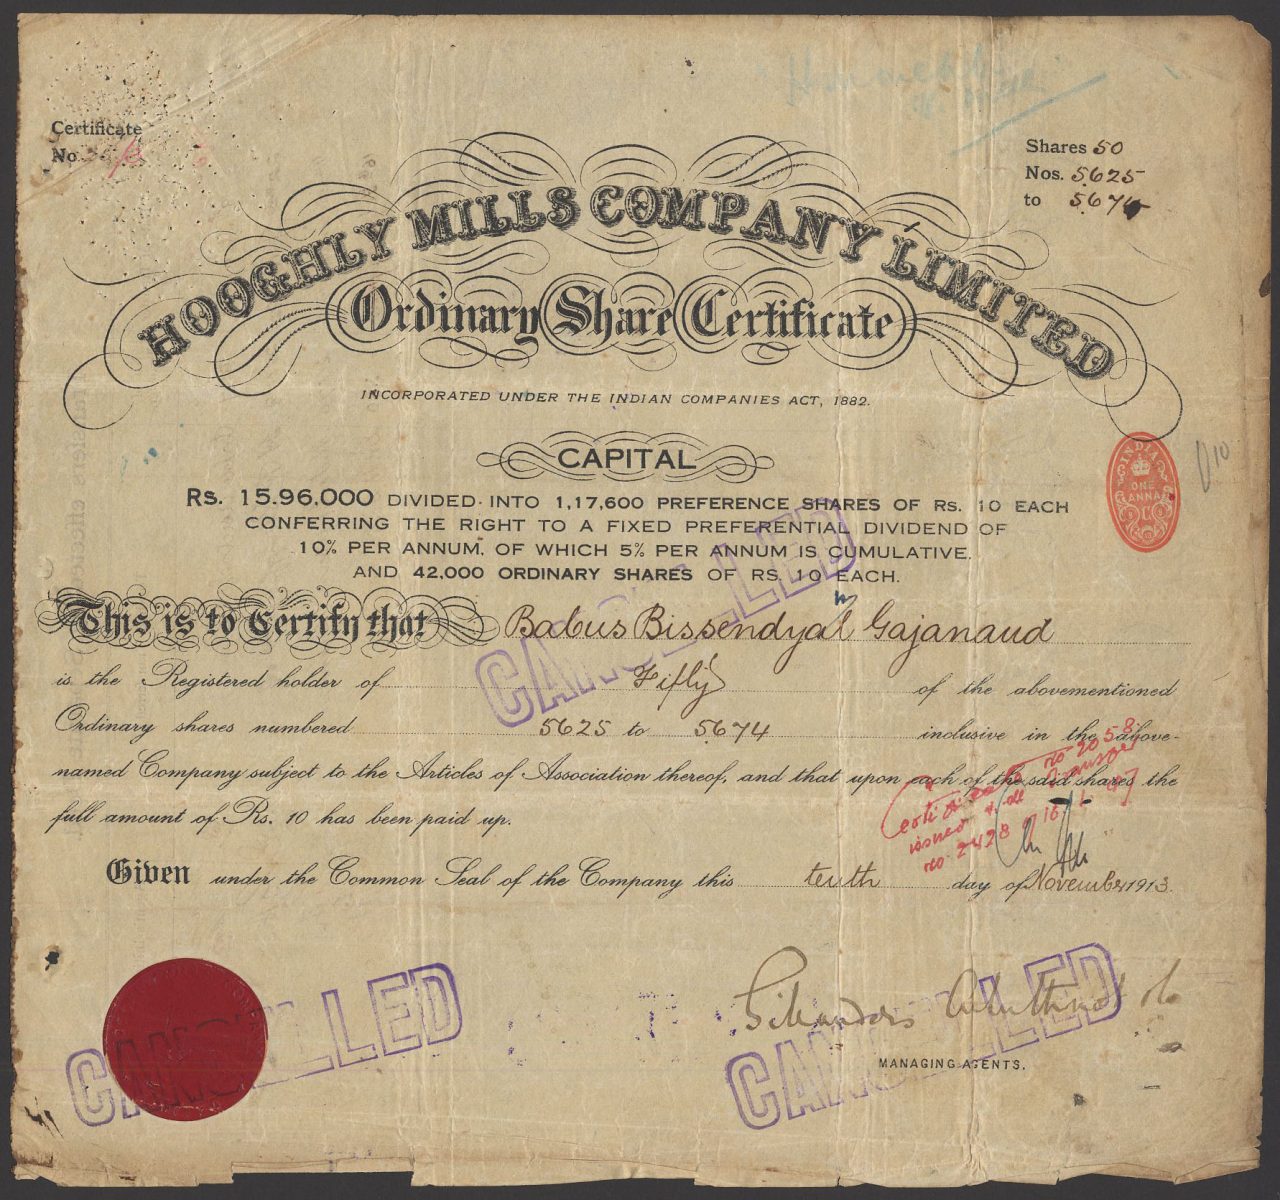 Certificate
No
Shares 50
Nos. 5625
to 5674
HOOGHLY MILLS COMPANY LIMITED
Ordinary Share Certificate
INCORPORATED UNDER THE INDIAN COMPANIES ACT, 1882.
CAPITAL
INDIA
ONE
ANNA
10
Rs. 15.96.000 DIVIDED INTO 1,17,600 PREFERENCE SHARES OF Rs. 10 EACH
CONFERRING THE RIGHT TO A FIXED PREFERENTIAL DIVIDEND OF
10% PER ANNUM. OF WHICH 5% PER ANNUM IS CUMULATIVE.
AND 42,000 ORDINARY SHARES OF RS. 10 EACH.
CANCELLED
This is to Certify that Babus Bissendyal Gajanaud
is the Registered holder of Fifty of the abovementioned
Ordinary shares numbered 5625 to 5674 inclusive in the above-
named Company subject to the Articles of Association thereof, and that upon each of the said shares the
full amount of Rs. 10 has been paid up.
no 2058
issued
no 2428
Given under the Common Seal of the Company this tenth day of November 1913.
CANCELLED
CANCELLED
Gillanders Arbuthnot Co
MANAGING AGENTS.